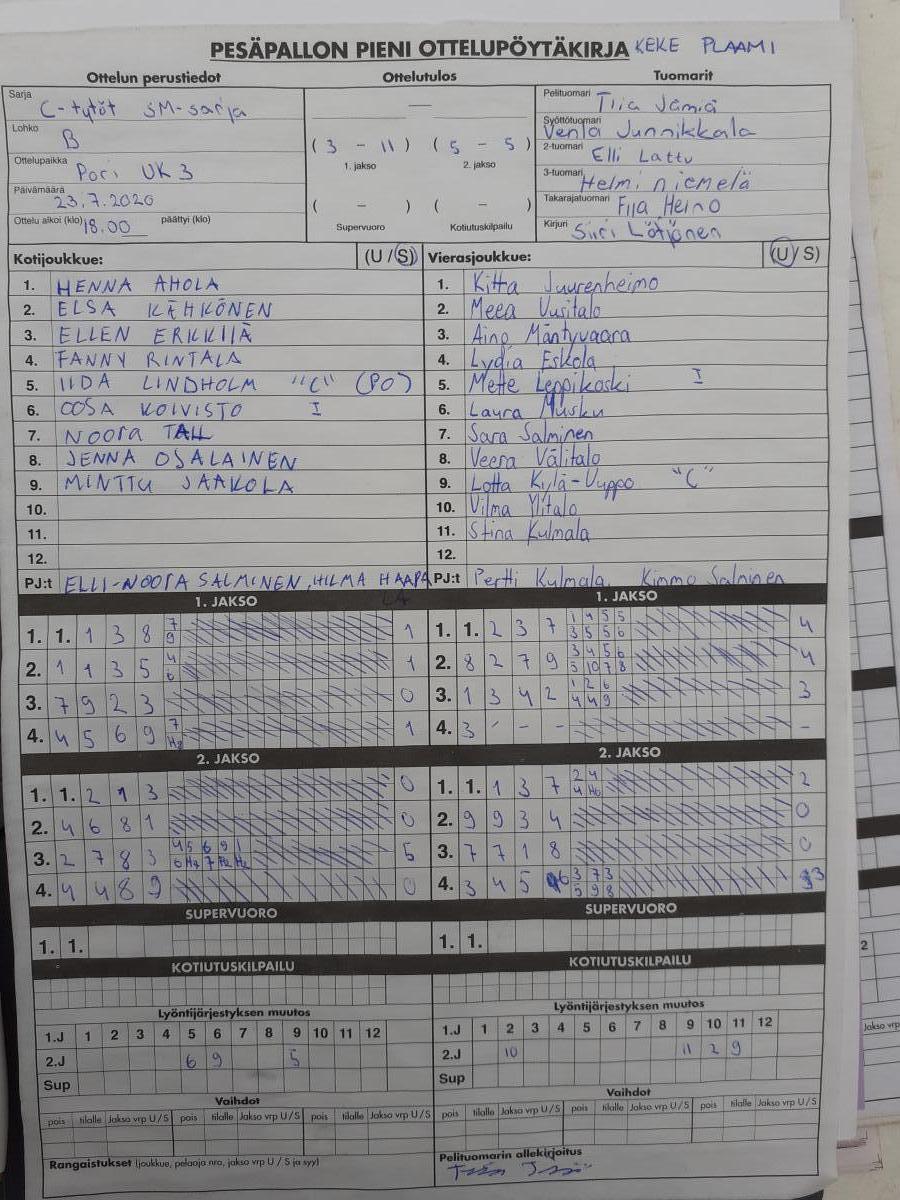 PESÄPALLON PIENI OTTELUPÖYTÄKIRJA KEKE PLAAMI
Ottelun perustiedot Ottelutulos Tuomarit
Sarja C-tytöt SM-sarja
Lohko B
Ottelupaikka Pori UK3
Päivämäärä 23.7.2020
Ottelu alkoi (klo) 18.00 päättyi (klo)
—
( 3 - 11 ) ( 5 - 5 )
1. jakso 2. jakso
( - ) ( - )
Supervuoro Kotiutuskilpailu
Pelituomari Tiia Jämiä
Syöttötuomari Venla Junnikkala
2-tuomari Elli Lattu
3-tuomari Helmi niemelä
Takarajatuomari Fiia Heino
Kirjuri Siiri Lötjönen
Kotijoukkue: (U / S)
1. HENNA AHOLA
2. ELSA KÄHKÖNEN
3. ELLEN ERKKILÄ
4. FANNY RINTALA
5. IIDA LINDHOLM "C" (PO)
6. OOSA KOIVISTO I
7. NOORA TALL
8. JENNA OSALAINEN
9. MINTTU JAAKOLA
10.
11.
12.
PJ:t ELLI-NOORA SALMINEN, HILMA HAAPALA
Vierasjoukkue: (U / S)
1. Kitta Juurenheimo
2. Meea Uusitalo
3. Aino Mäntyvaara
4. Lydia Eskola
5. Mette Leppikoski I
6. Laura Musku
7. Sara Salminen
8. Veera Välitalo
9. Lotta Kylä-Utsuppo "C"
10. Vilma Ylitalo
11. Stina Kulmala
12.
PJ:t Pertti Kulmala, Kimmo Salminen
1. JAKSO
1. 1. 1 3 8 7 9 1
2. 1 1 3 5 4 6 1
3. 7 9 2 3 0
4. 4 5 6 9 7 Ha 1
2. JAKSO
1. 1. 2 1 3 0
2. 4 6 8 1 0
3. 2 7 8 3 4 5 6 9 1 5
6 Ha 7 Ha Ha
4. 4 4 8 9 0
SUPERVUORO
1. 1.
KOTIUTUSKILPAILU
1. JAKSO
1. 1. 2 3 7 1 4 5 5 4
3 5 5 6
2. 8 2 7 9 3 4 5 6 4
5 10 7 8
3. 1 3 4 2 1 2 6 3
4 4 9
4. 3 - - - -
2. JAKSO
1. 1. 1 3 7 2 4 2
4 Ha
2. 9 9 3 4 0
3. 7 7 1 8 0
4. 3 4 5 6 3 7 3 3
5 9 8
SUPERVUORO
1. 1.
KOTIUTUSKILPAILU
Lyöntijärjestyksen muutos
1.J 1 2 3 4 5 6 7 8 9 10 11 12
2.J 6 9 5
Sup
Vaihdot
pois tilalle Jakso vrp U / S pois tilalle Jakso vrp U / S pois tilalle Jakso vrp U / S
Rangaistukset (joukkue, pelaaja nro, jakso vrp U / S ja syy)
Lyöntijärjestyksen muutos
1.J 1 2 3 4 5 6 7 8 9 10 11 12
2.J 10 11 2 9
Sup
Vaihdot
pois tilalle Jakso vrp U / S pois tilalle Jakso vrp U / S pois tilalle Jakso vrp U / S
Pelituomarin allekirjoitus
2
Jakso vrp